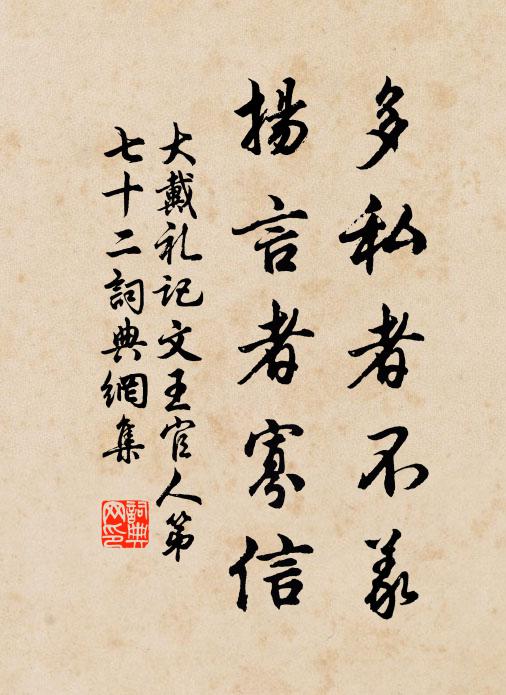 多私者不义
揚言者寡信
大戴礼记文王官人第
七十二詞典網集
詞典
网印